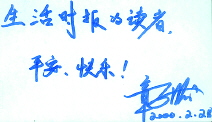 生活时报的读者,
平安、快乐!
2000.2.28